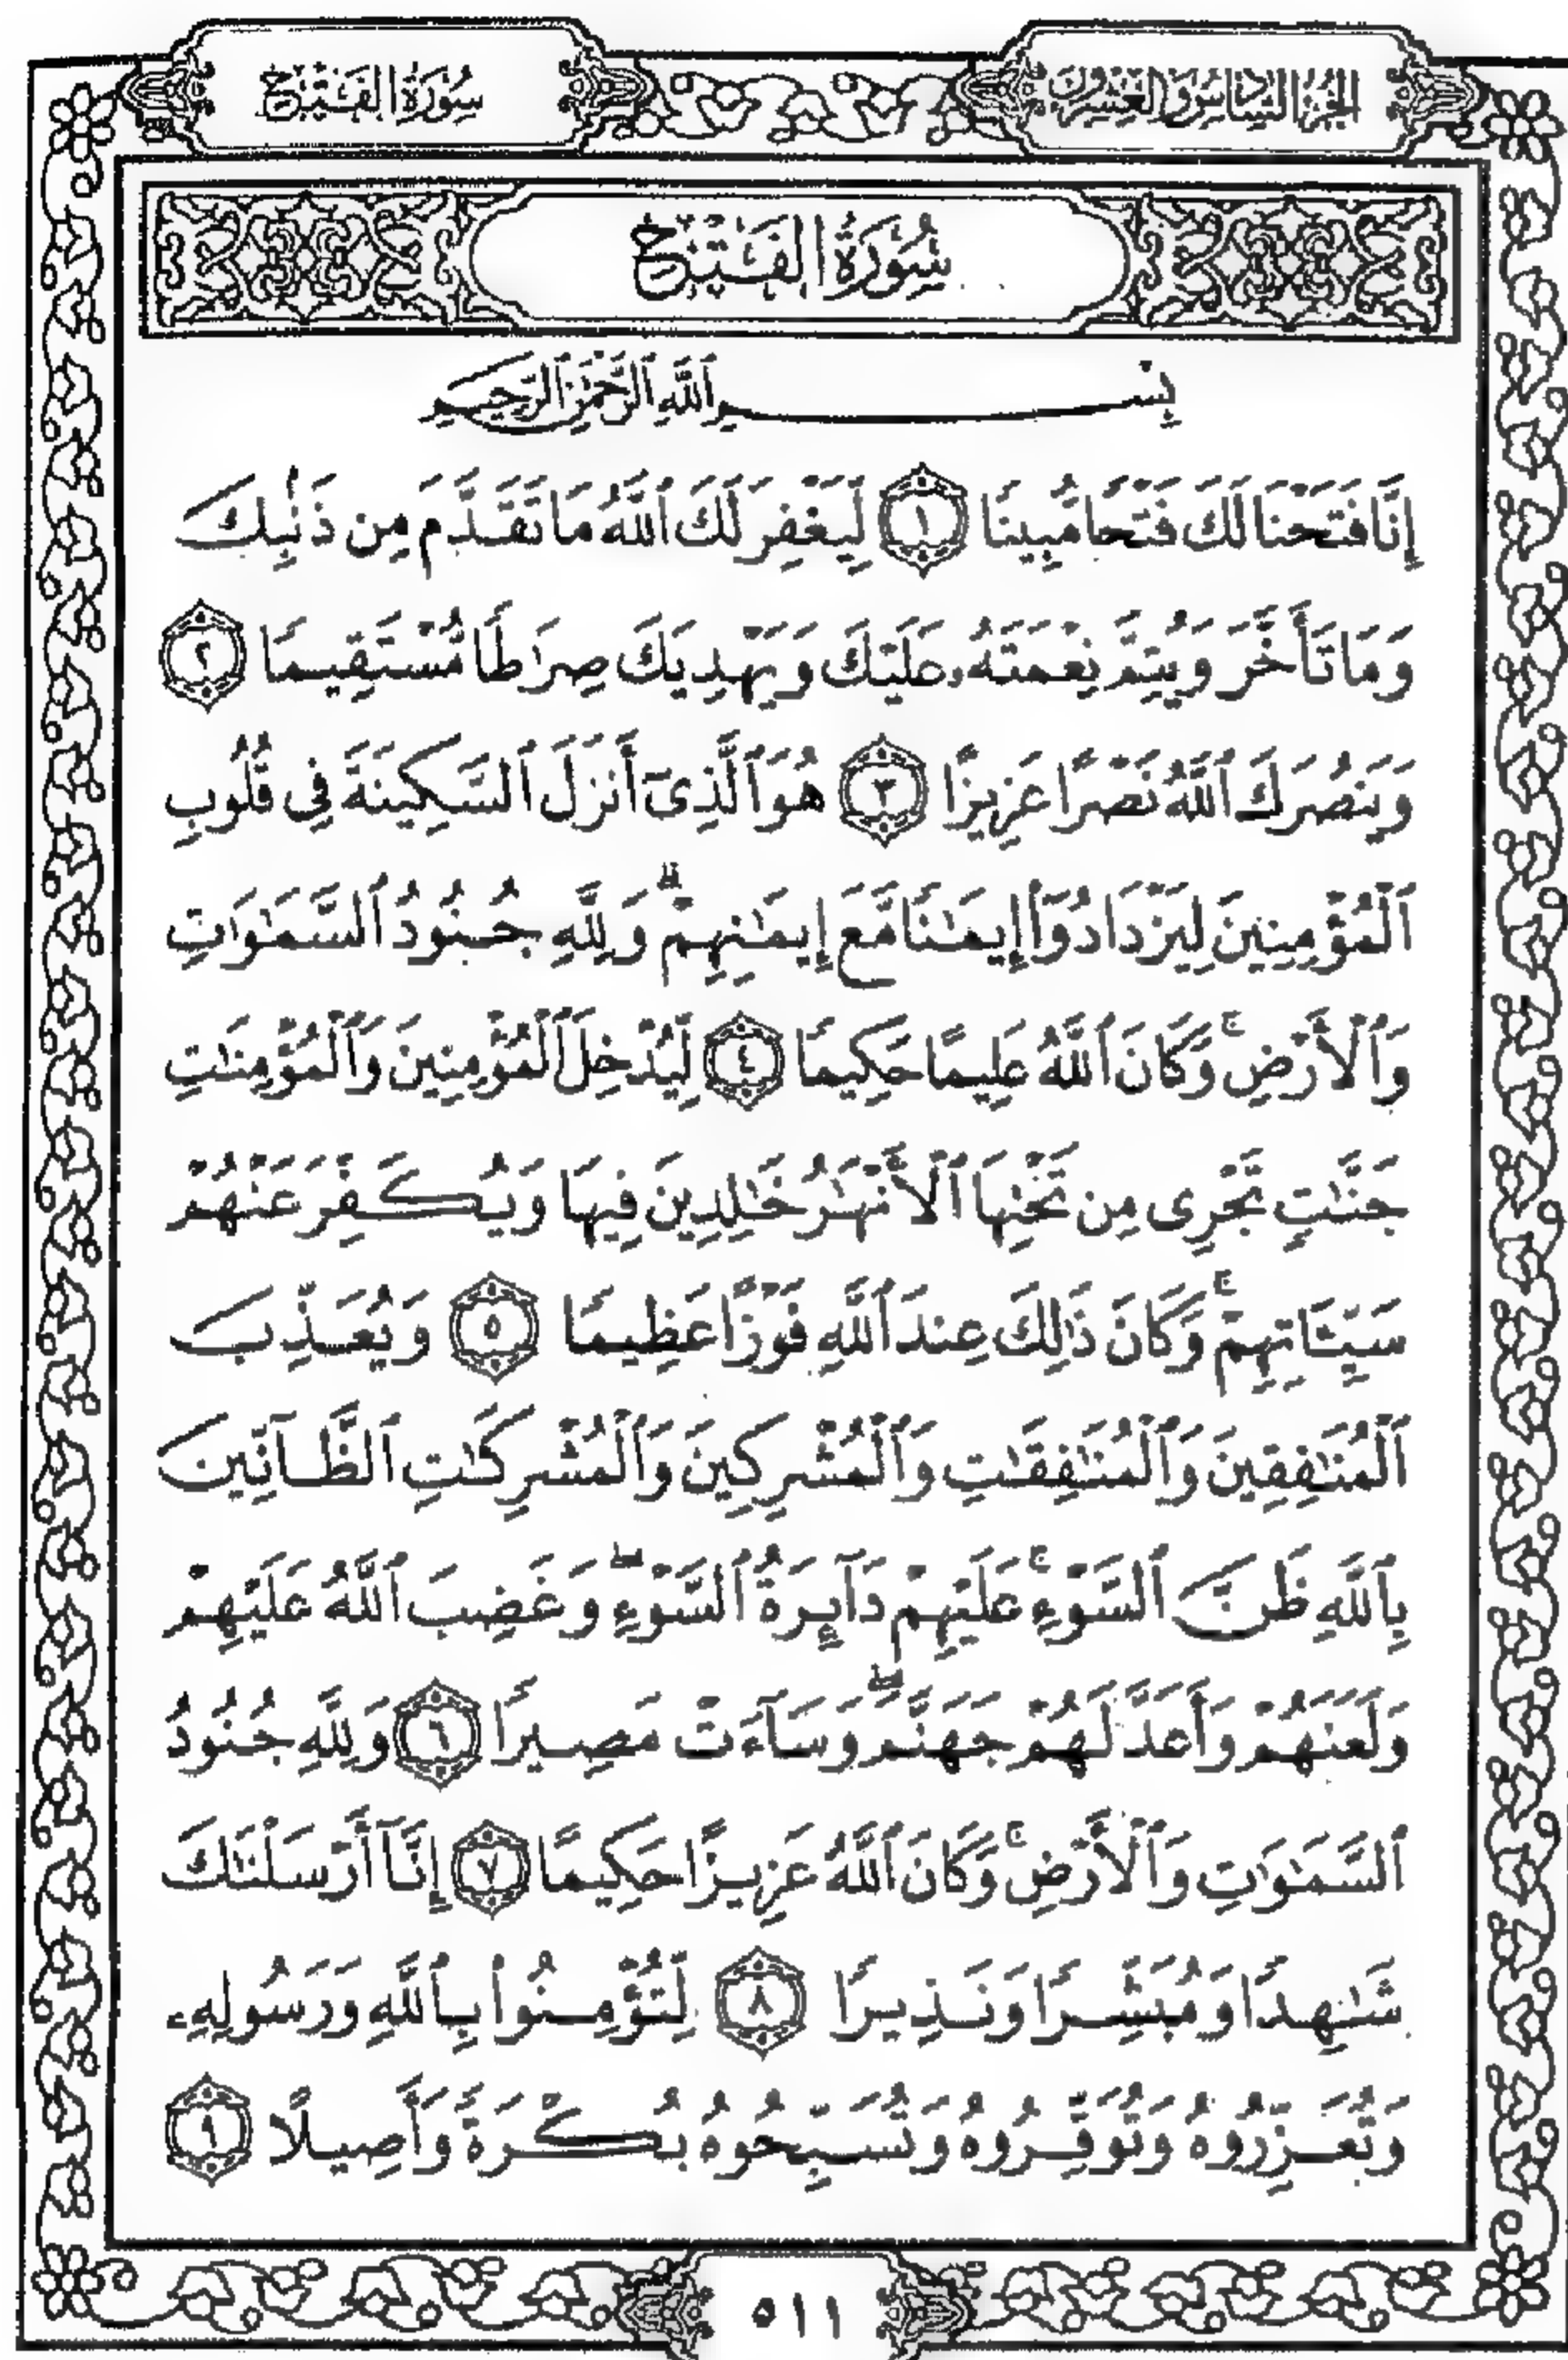 الجزء السادس والعشرون
سورة الفتح
سُورَةُ الفَتْحِ
بِسْمِ ٱللَّهِ ٱلرَّحْمَٰنِ ٱلرَّحِيمِ
إِنَّا فَتَحْنَا لَكَ فَتْحًا مُّبِينًا ١ لِّيَغْفِرَ لَكَ ٱللَّهُ مَا تَقَدَّمَ مِن ذَنۢبِكَ
وَمَا تَأَخَّرَ وَيُتِمَّ نِعْمَتَهُۥ عَلَيْكَ وَيَهْدِيَكَ صِرَٰطًا مُّسْتَقِيمًا ٢
وَيَنصُرَكَ ٱللَّهُ نَصْرًا عَزِيزًا ٣ هُوَ ٱلَّذِىٓ أَنزَلَ ٱلسَّكِينَةَ فِى قُلُوبِ
ٱلْمُؤْمِنِينَ لِيَزْدَادُوٓا۟ إِيمَٰنًا مَّعَ إِيمَٰنِهِمْ ۗ وَلِلَّهِ جُنُودُ ٱلسَّمَٰوَٰتِ
وَٱلْأَرْضِ ۚ وَكَانَ ٱللَّهُ عَلِيمًا حَكِيمًا ٤ لِّيُدْخِلَ ٱلْمُؤْمِنِينَ وَٱلْمُؤْمِنَٰتِ
جَنَّٰتٍ تَجْرِى مِن تَحْتِهَا ٱلْأَنْهَٰرُ خَٰلِدِينَ فِيهَا وَيُكَفِّرَ عَنْهُمْ
سَيِّـَٔاتِهِمْ ۚ وَكَانَ ذَٰلِكَ عِندَ ٱللَّهِ فَوْزًا عَظِيمًا ٥ وَيُعَذِّبَ
ٱلْمُنَٰفِقِينَ وَٱلْمُنَٰفِقَٰتِ وَٱلْمُشْرِكِينَ وَٱلْمُشْرِكَٰتِ ٱلظَّآنِّينَ
بِٱللَّهِ ظَنَّ ٱلسَّوْءِ ۚ عَلَيْهِمْ دَآئِرَةُ ٱلسَّوْءِ ۖ وَغَضِبَ ٱللَّهُ عَلَيْهِمْ
وَلَعَنَهُمْ وَأَعَدَّ لَهُمْ جَهَنَّمَ ۖ وَسَآءَتْ مَصِيرًا ٦ وَلِلَّهِ جُنُودُ
ٱلسَّمَٰوَٰتِ وَٱلْأَرْضِ ۚ وَكَانَ ٱللَّهُ عَزِيزًا حَكِيمًا ٧ إِنَّآ أَرْسَلْنَٰكَ
شَٰهِدًا وَمُبَشِّرًا وَنَذِيرًا ٨ لِّتُؤْمِنُوا۟ بِٱللَّهِ وَرَسُولِهِۦ
وَتُعَزِّرُوهُ وَتُوَقِّرُوهُ وَتُسَبِّحُوهُ بُكْرَةً وَأَصِيلًا ٩
٥١١